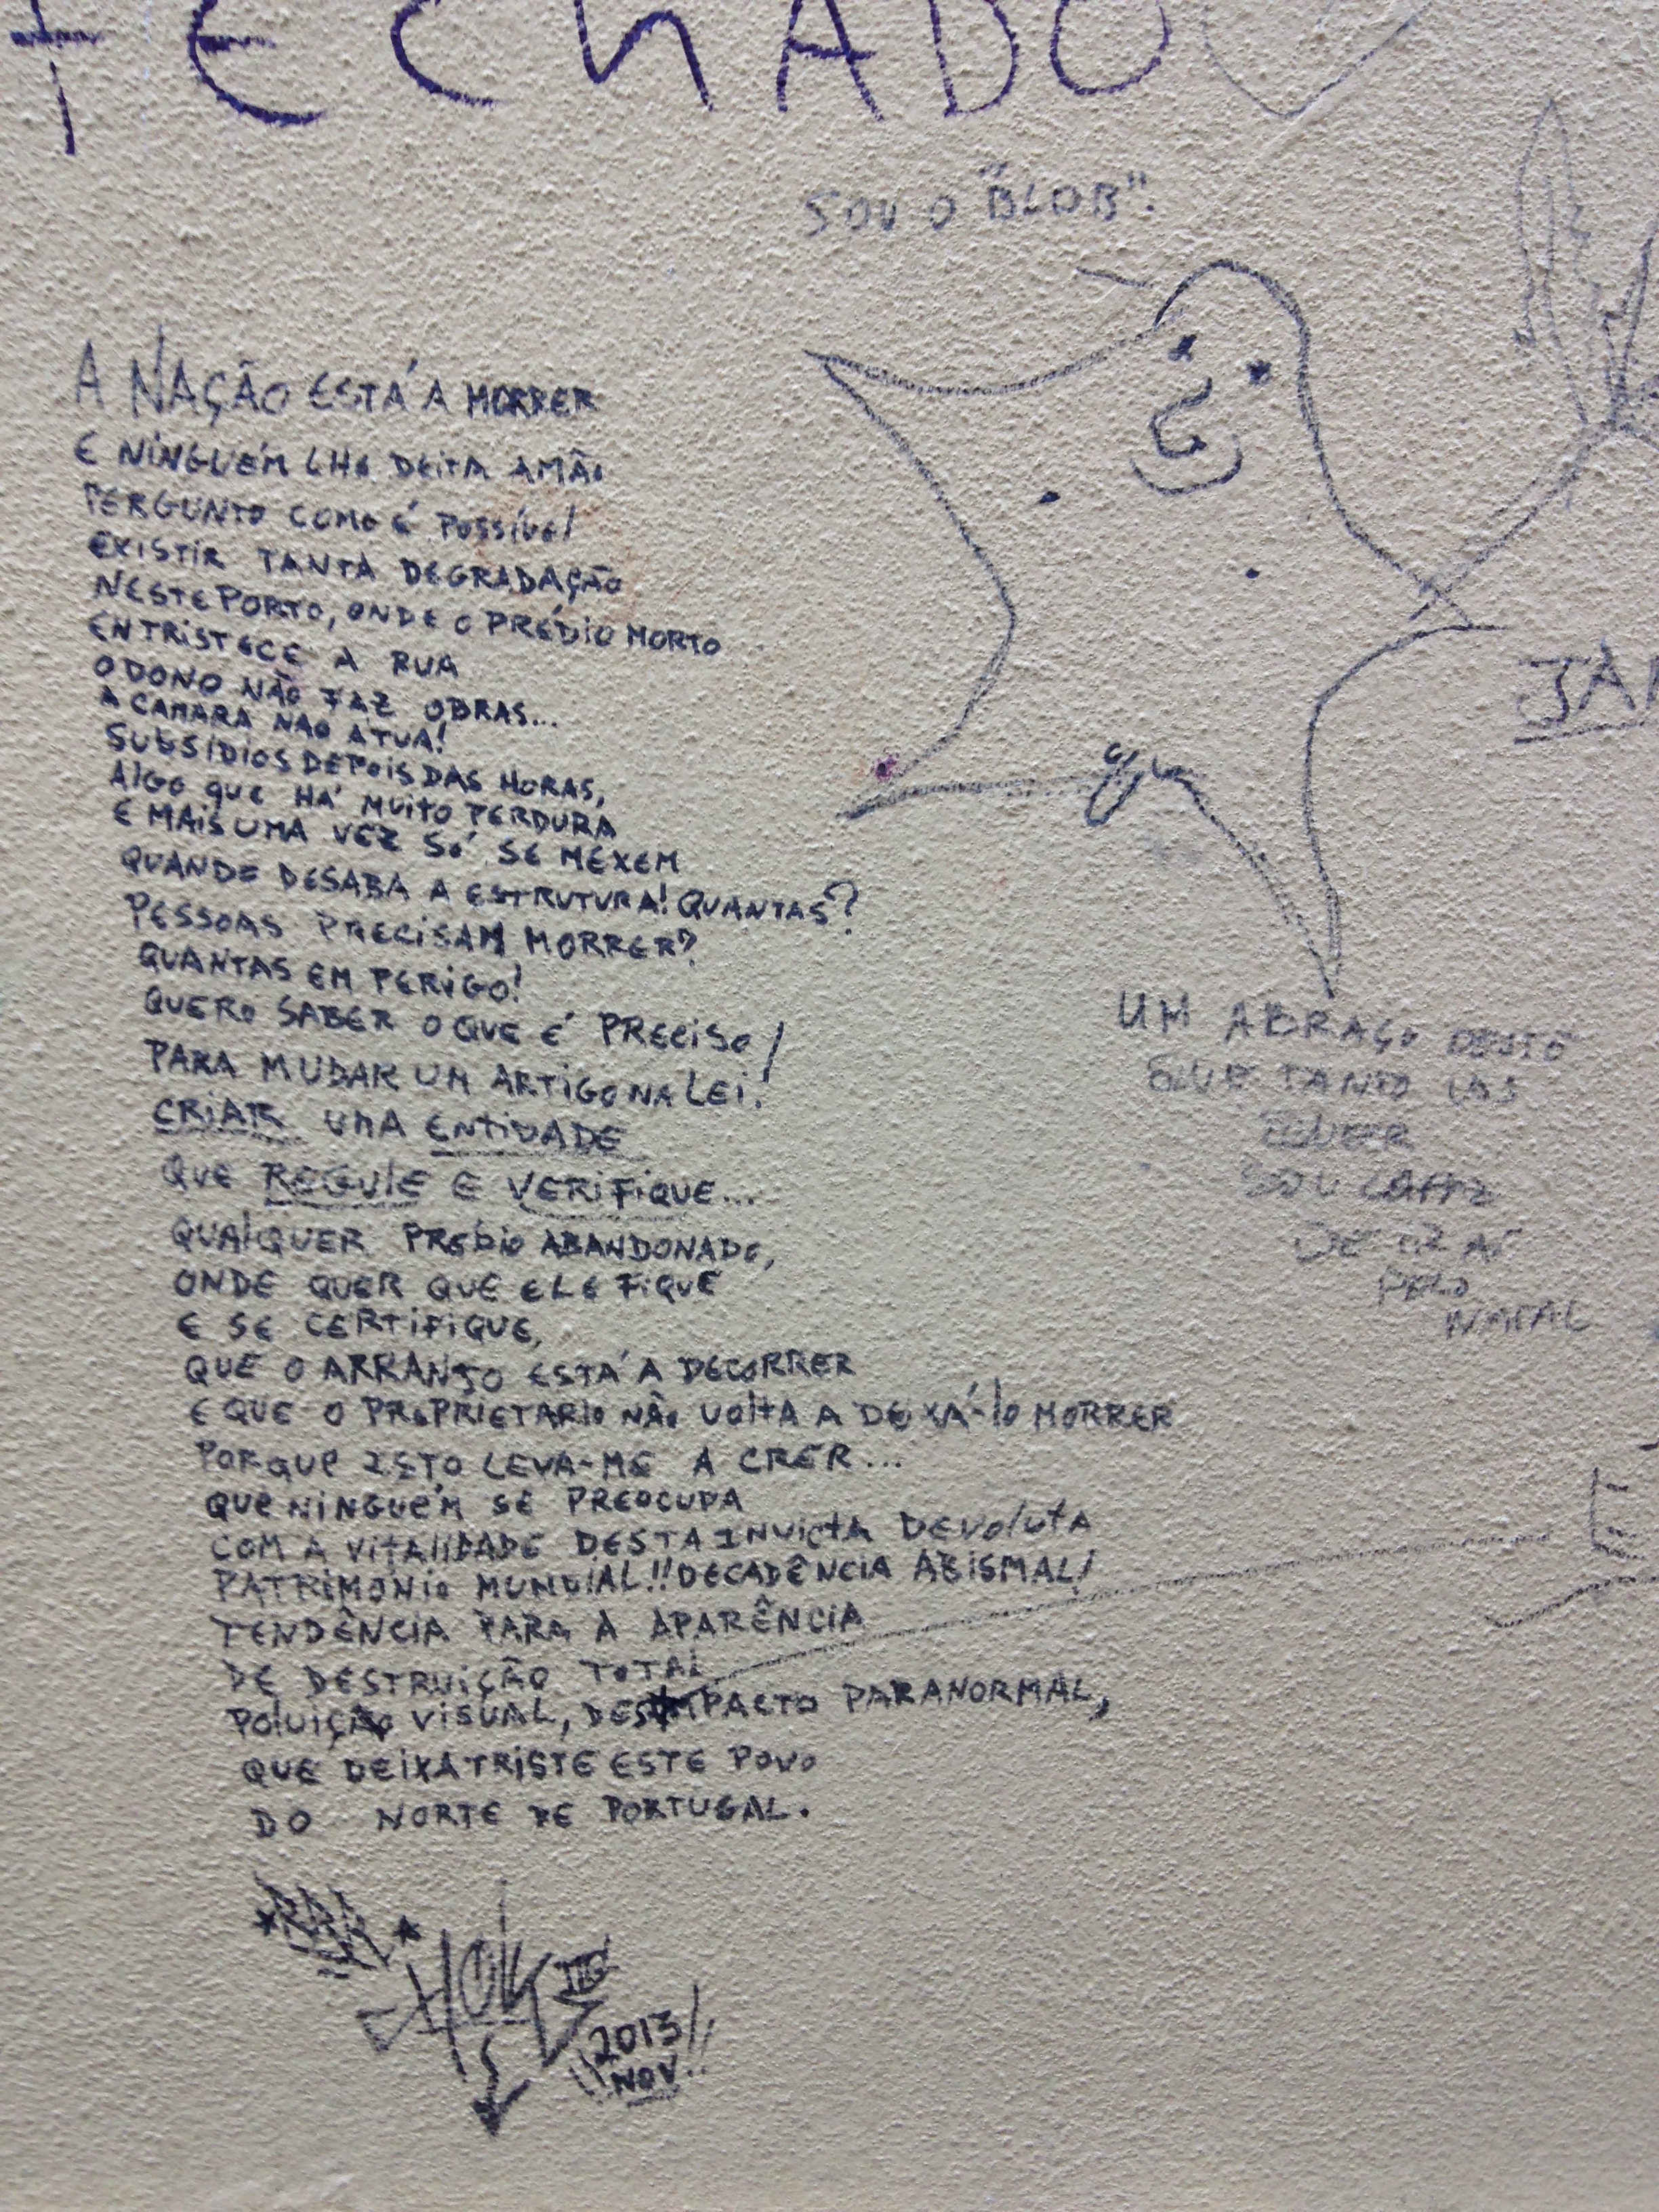 FECHADO
SOU O "BLOB".
A NAÇÃO ESTÁ A MORRER
E NINGUÉM LHE DEITA A MÃO
PERGUNTO COMO É POSSÍVEL
EXISTIR TANTA DEGRADAÇÃO
NESTE PORTO, ONDE O PRÉDIO MORTO
ENTRISTECE A RUA
O DONO NÃO FAZ OBRAS...
A CAMARA NAO ATUA!
SUBSÍDIOS DEPOIS DAS HORAS,
ALGO QUE HÁ MUITO PERDURA
E MAIS UMA VEZ SÓ SE MEXEM
QUANDO DESABA A ESTRUTURA! QUANTAS?
PESSOAS PRECISAM MORRER?
QUANTAS EM PERIGO!
QUERO SABER O QUE É PRECISO!
PARA MUDAR UM ARTIGO NA LEI!
CRIAR UMA ENTIDADE
QUE REGULE E VERIFIQUE...
QUALQUER PREDIO ABANDONADO,
ONDE QUER QUE ELE FIQUE
E SE CERTIFIQUE,
QUE O ARRANJO ESTÁ A DECORRER
E QUE O PROPRIETARIO NÃO VOLTA A DEIXÁ-LO MORRER
PORQUE ISTO LEVA-ME A CRER...
QUE NINGUÉM SE PREOCUPA
COM A VITALIDADE DESTA INVICTA DEVOLUTA
PATRIMÓNIO MUNDIAL!! DECADÊNCIA ABISMAL!
TENDÊNCIA PARA A APARÊNCIA
DE DESTRUIÇÃO TOTAL
POLUIÇÃO VISUAL, DESIMPACTO PARANORMAL,
QUE DEIXA TRISTE ESTE POVO
DO NORTE DE PORTUGAL.
2013!!
NOV.
JAN
UM ABRAÇO DESTE
QUE TANTO VOS
QUER
SOU CAPAZ
DE IR AÍ
PELO
NATAL